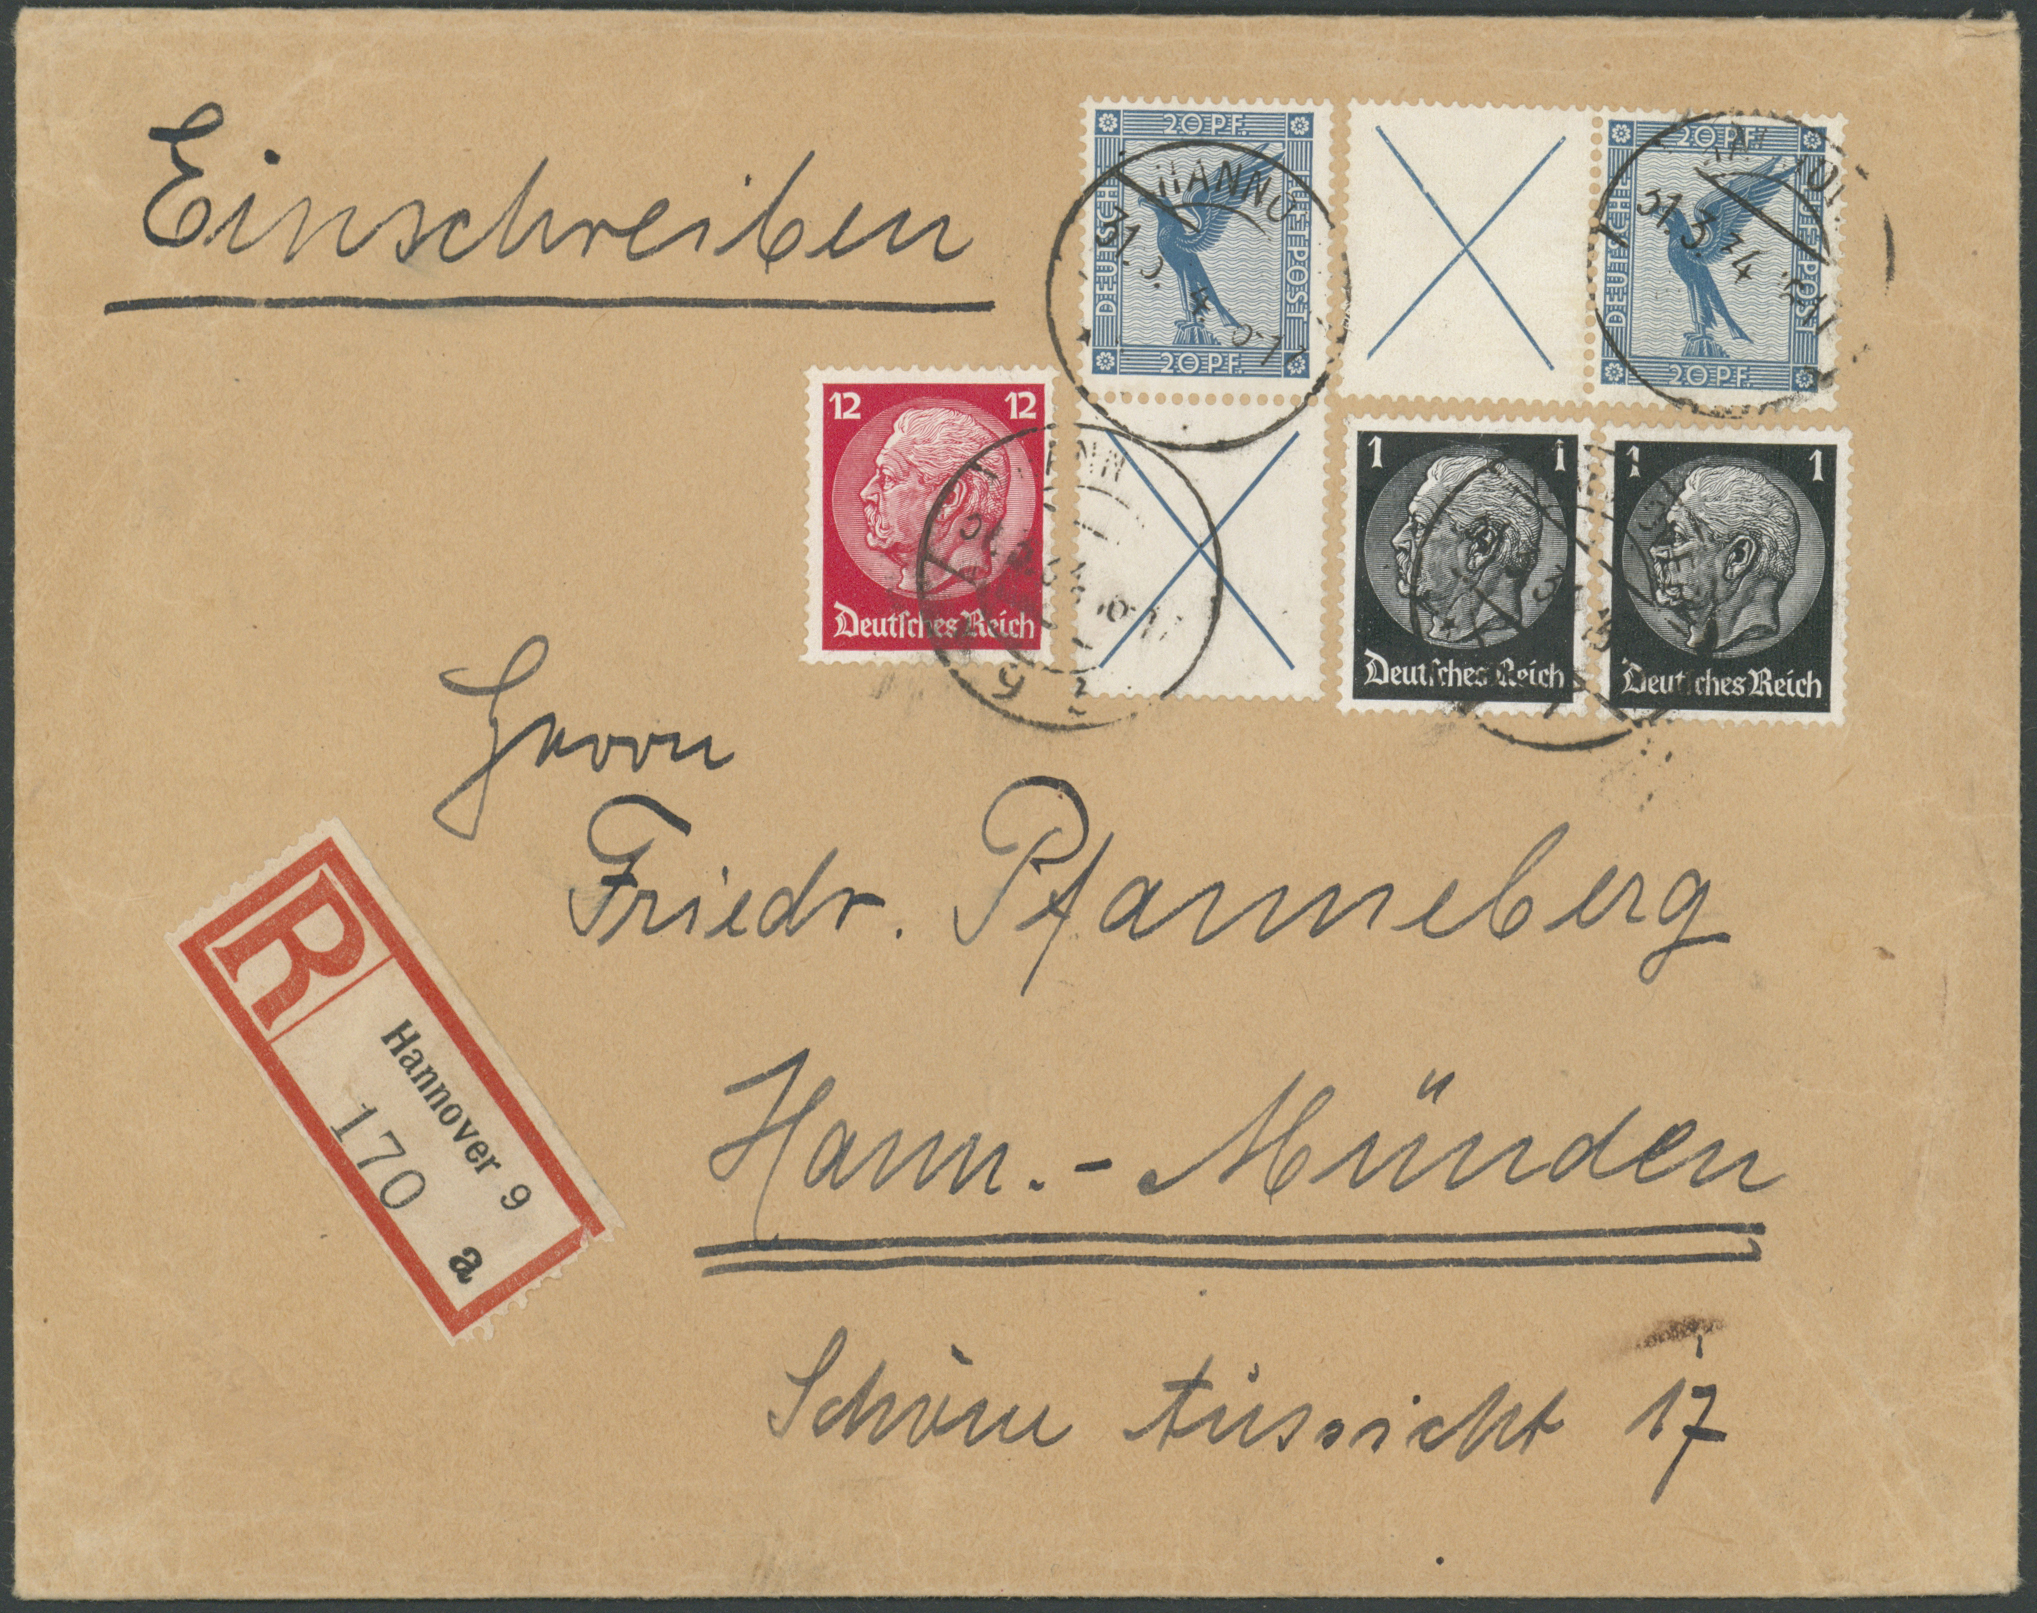 Einschreiben
20 PF.
DEUTSCHE
LUFTPOST
20 PF.
20 PF.
DEUTSCHE
LUFTPOST
20 PF.
31.3.34
12 12
Deutsches Reich
1 1
Deutsches Reich
1 1
Deutsches Reich
Herrn
Friedr. Pfanneberg
Hann.-Münden
Schöne Aussicht 17
R
Hannover 9
170
a